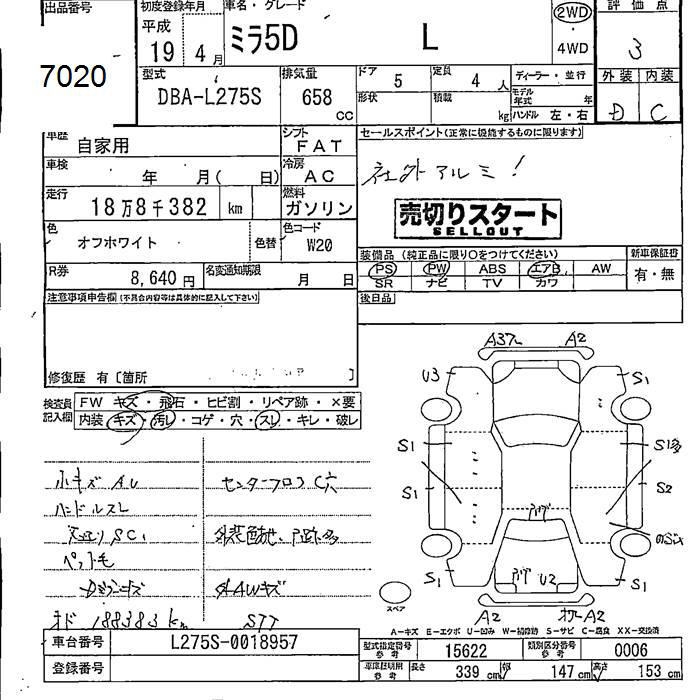 出品番号
初度登録年月
車名・グレード
2WD
評価点
7020
平成
19 4月
ミラ5D
L
4WD
3
型式
排気量
ドア
5
定員
4人
ディーラー・並行
外装 内装
DBA-L275S
658
CC
形状
積載
kg
モデル年式
年
ハンドル 左・右
D
C
車歴
自家用
シフト
FAT
セールスポイント(正常に機能するものに限ります)
車検
年 月( 日)
冷房
AC
社外アルミ!
走行
18万8千382
km
燃料
ガソリン
売切りスタート
SELLOUT
色
オフホワイト
色替
色コード
W20
装備品(純正品に限り○をつけてください)
新車保証書
R券
8,640円
名変通知期限
月 日
PS PW ABS エアB AW
SR ナビ TV カワ
有・無
注意事項申告欄(不具合内容等は具体的に記入して下さい)
後日品
修復歴 有〔箇所 〕
検査員記入欄
FW キズ・飛石・ヒビ割・リペア跡・×要
内装 キズ・汚レ・コゲ・穴・スレ・キレ・破レ
A3 A2
U3 S1
S1 S1多
S1 S2
S1 S1
U2
A2 A2
小キズAU
センターフロアC穴
ハンドルスレ
SC1
ペット毛
Dミラーキズ
AWキズ
オド 188383km
スペア
A-キズ E-エクボ U-凹み W-補修跡 S-サビ C-腐食 XX-交換済
車台番号
L275S-0018957
型式指定番号
参考
15622
類別区分番号
参考
0006
登録番号
車庫証明用
参考
長さ
339 cm
幅
147 cm
高さ
153 cm